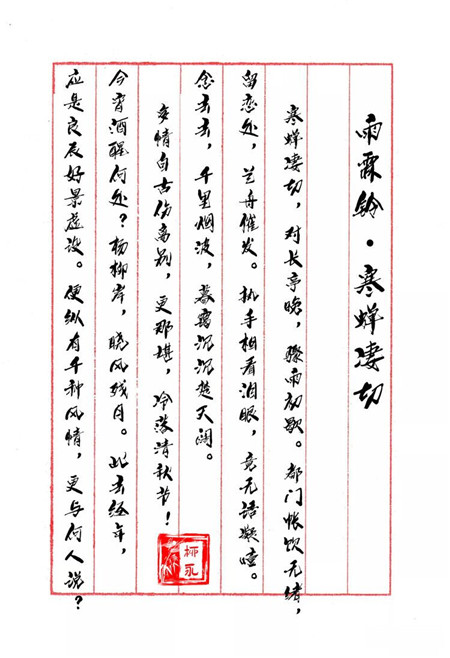 雨霖铃·寒蝉凄切
寒蝉凄切，对长亭晚，骤雨初歇。都门帐饮无绪，
留恋处，兰舟催发。执手相看泪眼，竟无语凝噎。
念去去，千里烟波，暮霭沉沉楚天阔。
多情自古伤离别，更那堪，冷落清秋节！
今宵酒醒何处？杨柳岸，晓风残月。此去经年，
应是良辰好景虚设。便纵有千种风情，更与何人说？
柳永